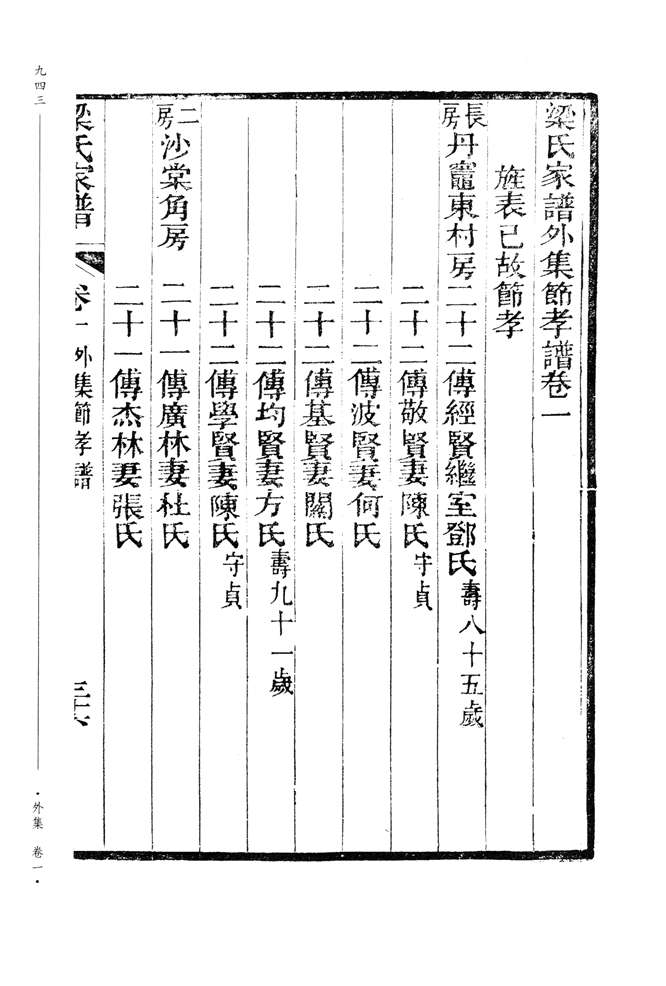 梁氏家譜外集節孝譜卷一
旌表已故節孝
長房丹竈東村房二十二傳經賢繼室鄧氏壽八十五歲
二十二傳敬賢妻陳氏守貞
二十二傳波賢妻何氏
二十二傳基賢妻關氏
二十二傳均賢妻方氏壽九十一歲
二十二傳學賢妻陳氏守貞
二房沙棠角房二十一傳廣林妻杜氏
二十一傳杰林妻張氏
梁氏家譜 卷一外集節孝譜
九四三
·外集 卷一·